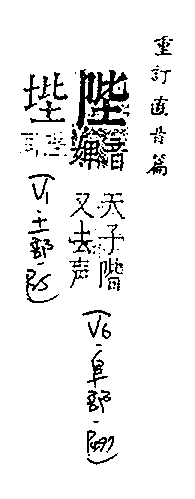 重訂直音篇
陛
音婢
天子階
又去声
(V6·阜部·
同上
(V1·土部·